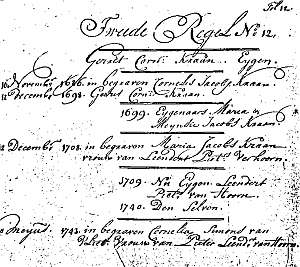 Fol: 12
Treede Regel No 12.
Gerrit Corn: Kraan. Eygen.
November 1676. in begraven Cornelis Jacobs Kraan.
12 December 1698. Corn: Kraan
1699. Eygenaars Maria &
Meynsie Jacobs Kraan
December 1708. in begraven Maria Jacobs Kraan
vrouw van Leendert Piets Verhoorn.
1709. Nu Eygen Leendert
Piets van Hoorn.
1740. Den Selven.
1743. in begraven Cornelia Simons van
vrouw van Pieter Leend: van Hoorn.